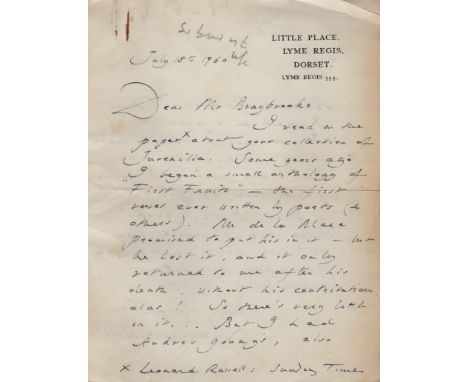 LITTLE PLACE,
LYME REGIS,
DORSET.
LYME REGIS 355.
July 18th 1960
Dear Mr Braybrooke
I read in the
paper x about your collection of
Juvenilia. Some years ago
I began a small anthology of
"First Fruits" – the first
verses ever written by poets (&
others). Mr de la Mare
promised to put his in it – but
he lost it, and it only
returned to me after his
death, without his contribution
alas! So there's very little
in it... But I had
Andrew Youngs, also
x Leonard Russell: Sunday Times